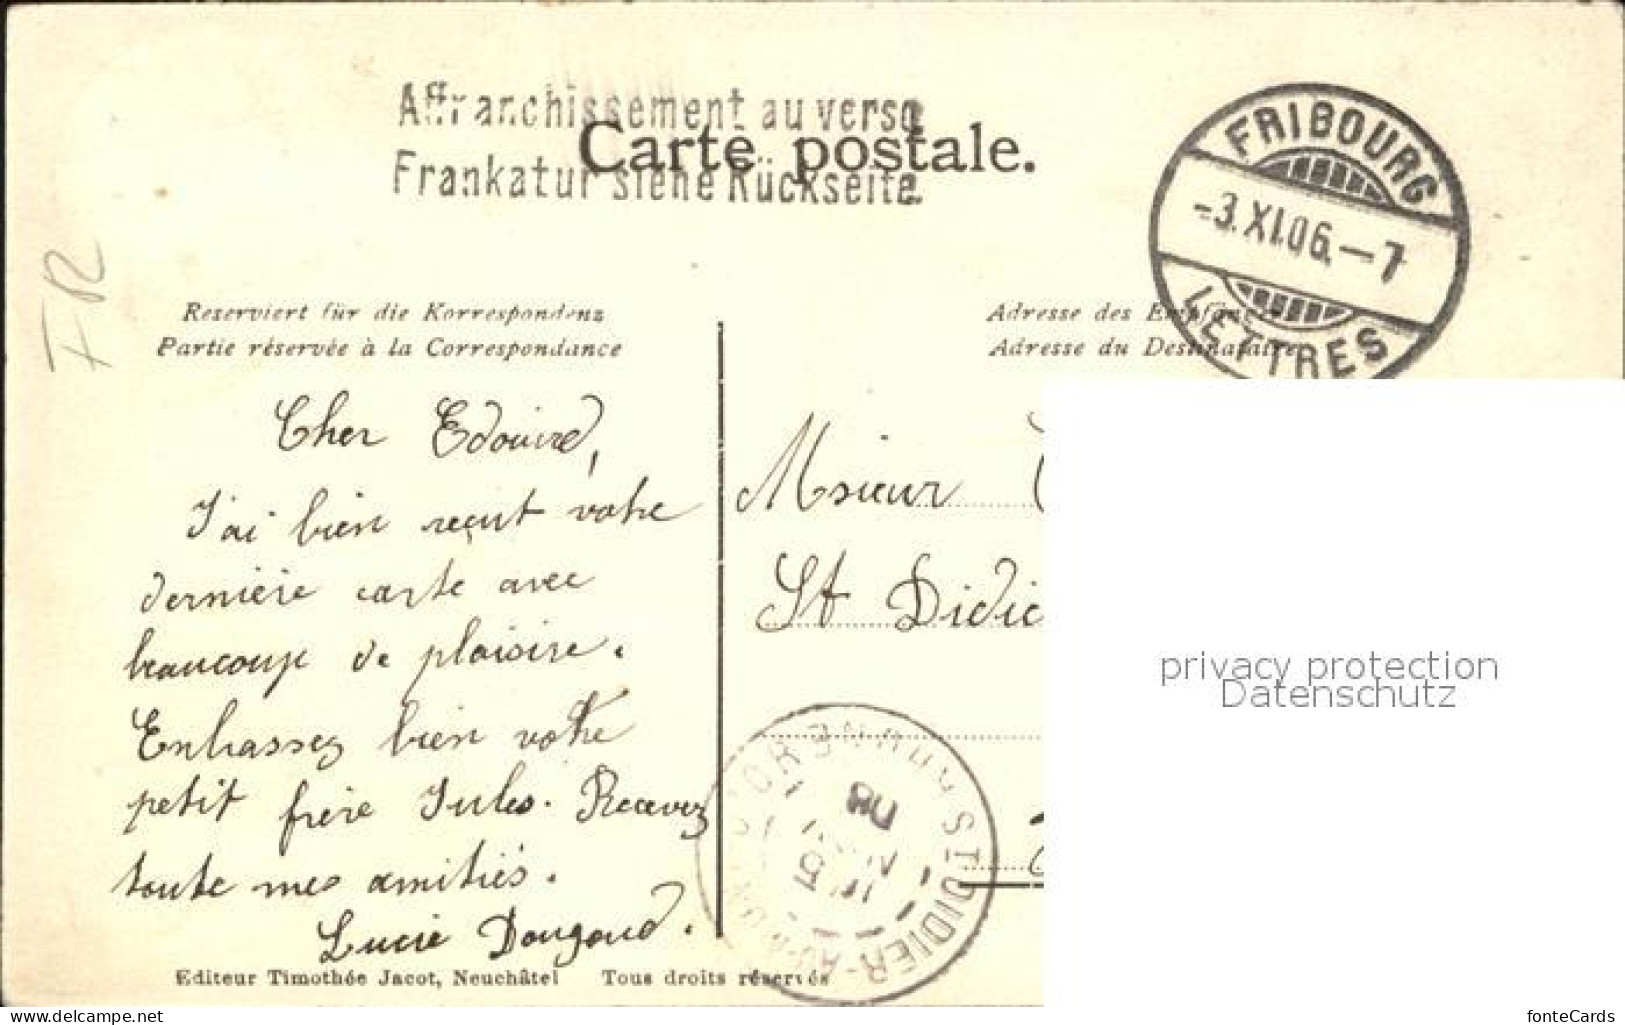 Affranchissement au verso
Frankatur siehe Rückseite.
Carte postale.
FRIBOURG
-3.XI.06.-7
LETTRES
FR
Reserviert für die Korrespondenz
Partie réservée à la Correspondance
Adresse des Empfängers
Adresse du Destinataire
Cher Edouird,
J'ai bien reçut votre
dernière carte avec
beaucoup de plaisire.
Embrassez bien votre
petit frère Jules. Recevez
toute mes amitiés.
Lucie Dougoud.
Msieur
St Didie
ST DIDIER-AU-MONT-D'OR
Editeur Timothée Jacot, Neuchâtel Tous droits réservés
privacy protection
Datenschutz
www.delcampe.net
fonteCards